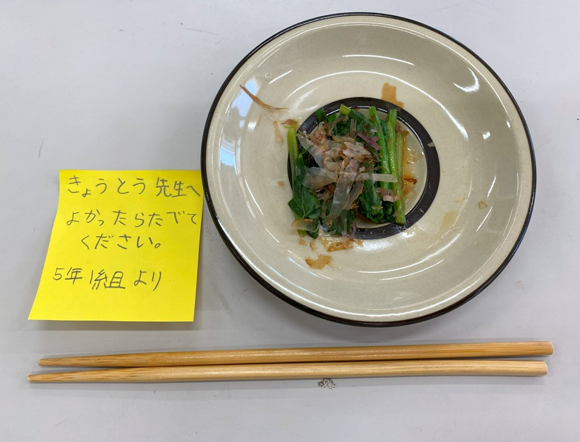 きょうとう先生へ
よかったらたべて
ください。
5年1組より